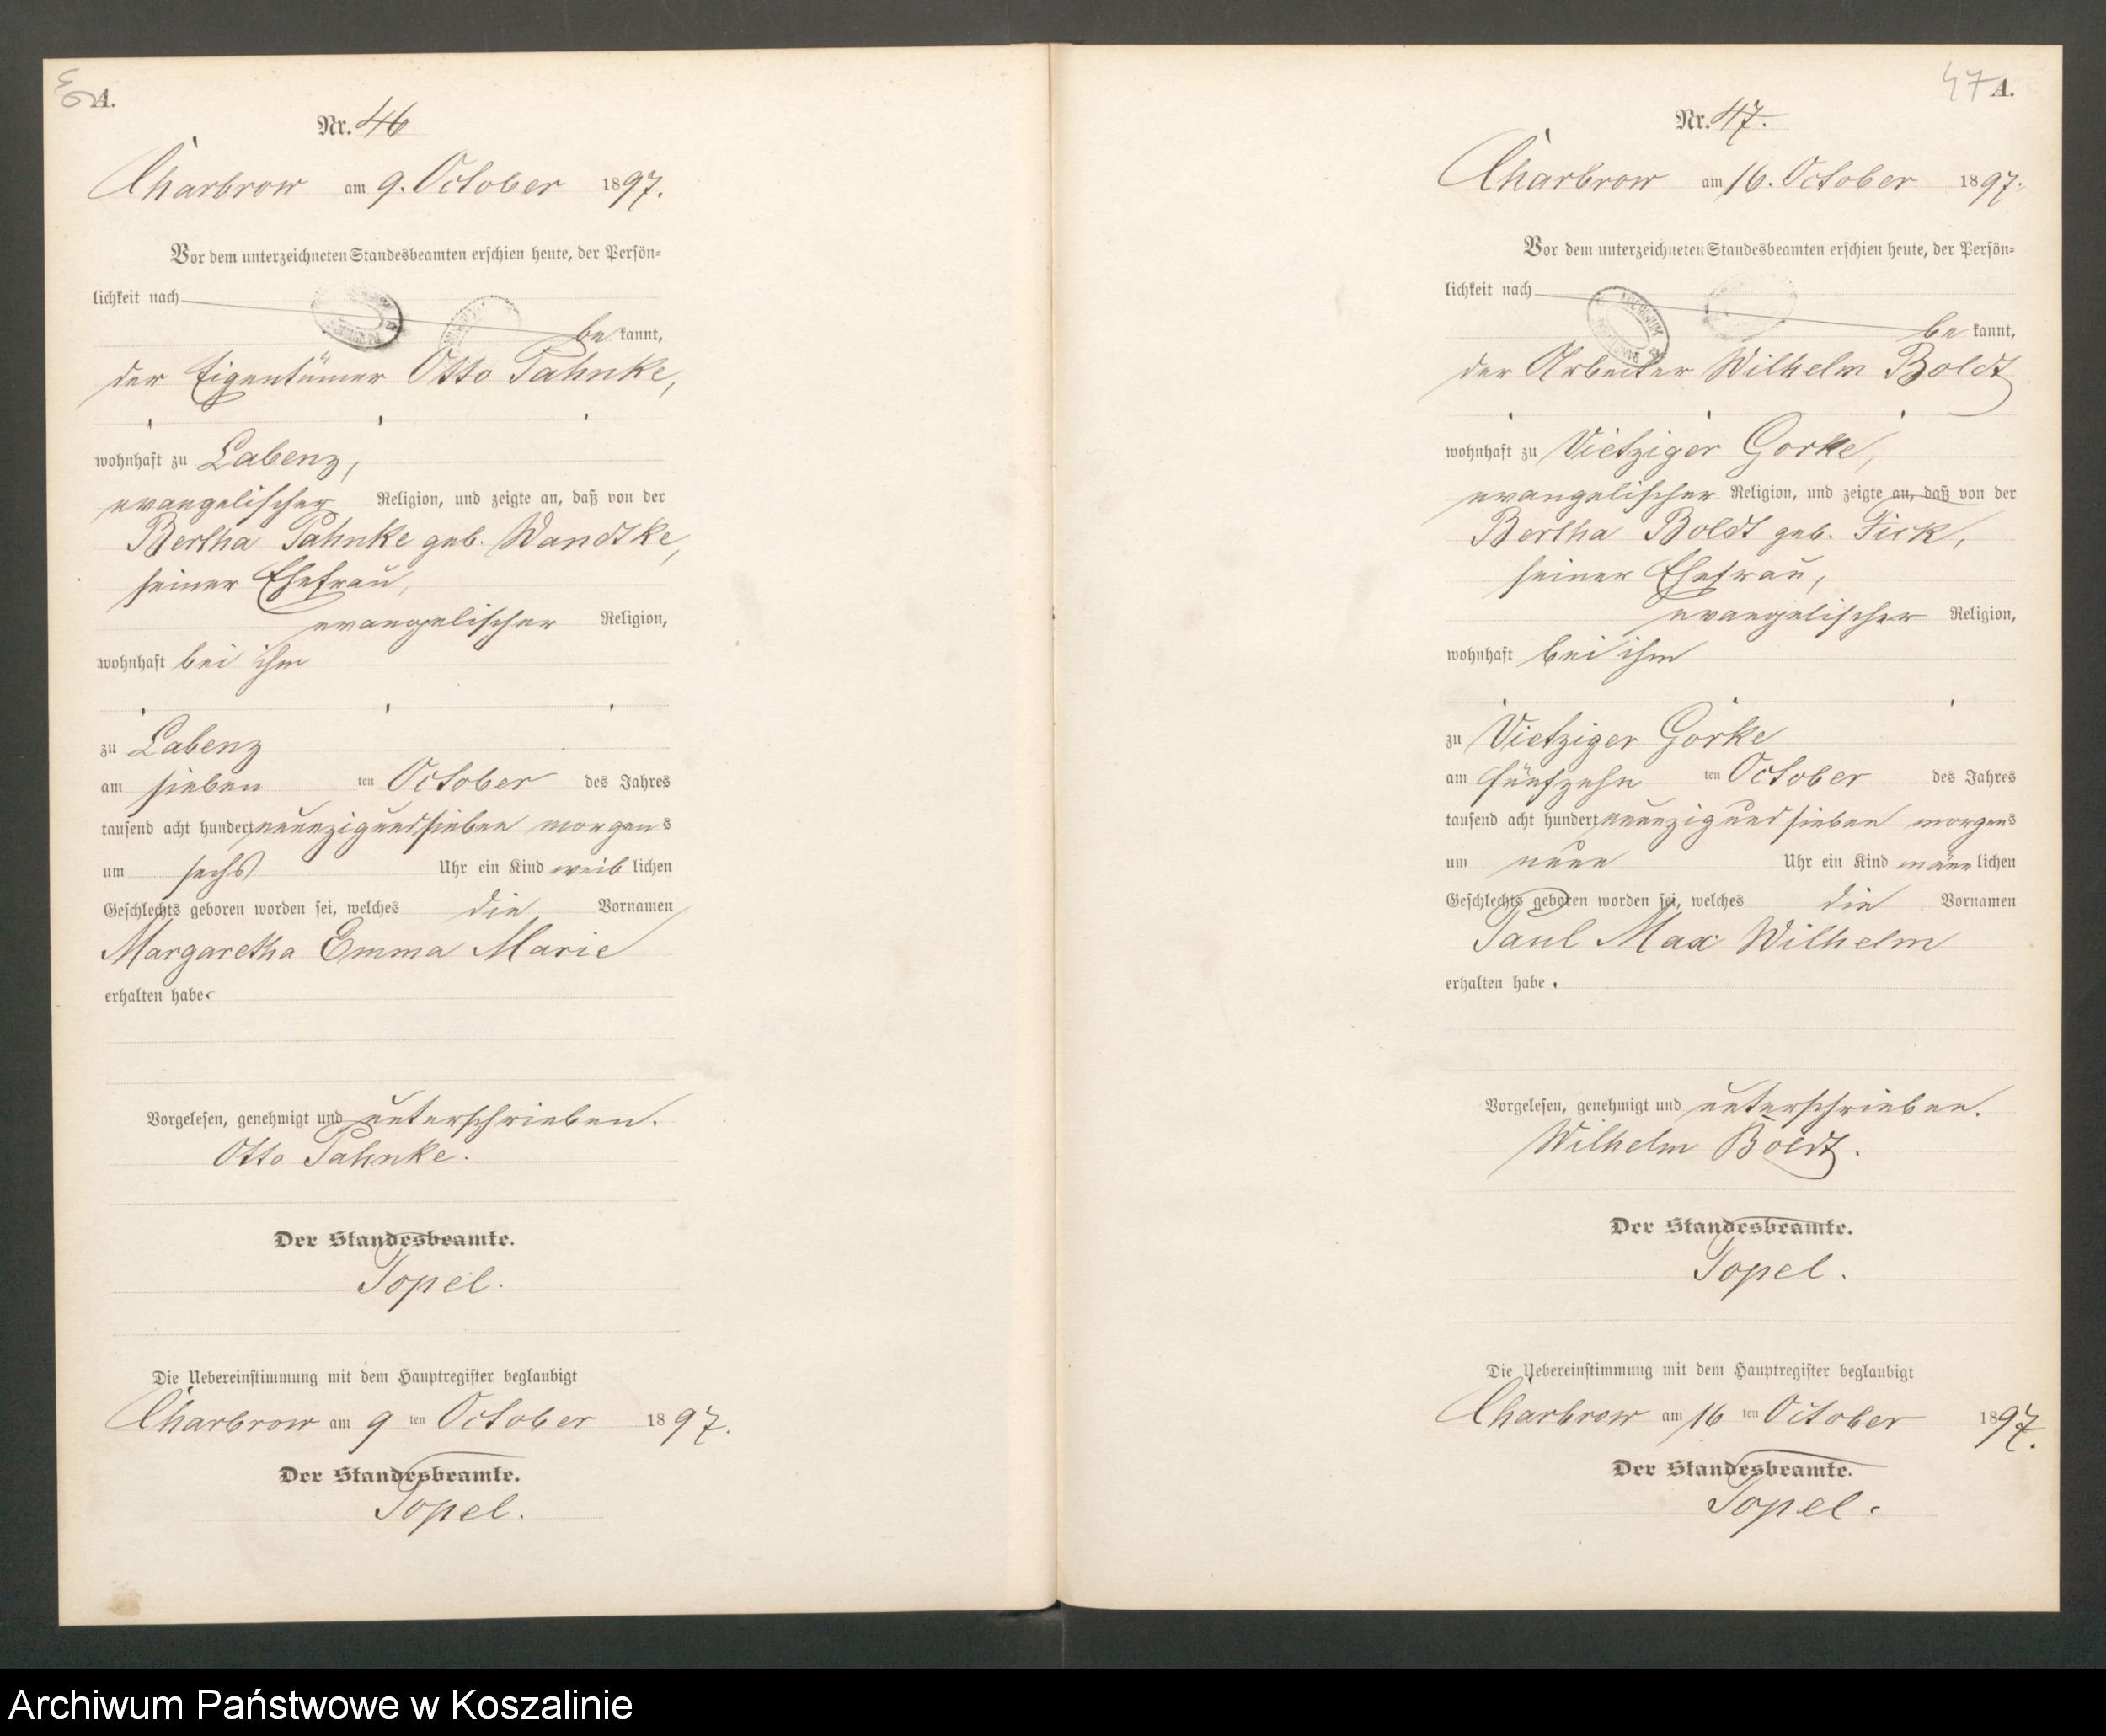 A.
Nr. 46
Charbrow am 9. October 1897.
Vor dem unterzeichneten Standesbeamten erschien heute, der Persön-
lichkeit nach
be kannt,
der Eigentümer Otto Pahnke,
wohnhaft zu Labenz,
evangelischer Religion, und zeigte an, daß von der
Bertha Pahnke geb. Wandtke,
seiner Ehefrau,
evangelischer Religion,
wohnhaft bei ihm
zu Labenz
am sieben ten October des Jahres
tausend acht hundert neunzig und sieben morgens
um sechs Uhr ein Kind weib lichen
Geschlechts geboren worden sei, welches die Vornamen
Margaretha Emma Marie
erhalten habe.
Vorgelesen, genehmigt und unterschrieben.
Otto Pahnke.
Der Standesbeamte.
Topel.
Die Uebereinstimmung mit dem Hauptregister beglaubigt
Charbrow am 9 ten October 1897.
Der Standesbeamte.
Topel.
47 A.
Nr. 47.
Charbrow am 16. October 1897.
Vor dem unterzeichneten Standesbeamten erschien heute, der Persön-
lichkeit nach
be kannt,
der Arbeiter Wilhelm Boldt
wohnhaft zu Vietziger Görke,
evangelischer Religion, und zeigte an, daß von der
Bertha Boldt geb. Fick,
seiner Ehefrau,
evangelischer Religion,
wohnhaft bei ihm
zu Vietziger Görke
am fünfzehn ten October des Jahres
tausend acht hundert neunzig und sieben morgens
um neun Uhr ein Kind männ lichen
Geschlechts geboren worden sei, welches die Vornamen
Paul Max Wilhelm
erhalten habe.
Vorgelesen, genehmigt und unterschrieben.
Wilhelm Boldt.
Der Standesbeamte.
Topel.
Die Uebereinstimmung mit dem Hauptregister beglaubigt
Charbrow am 16 ten October 1897.
Der Standesbeamte.
Topel.
Archiwum Państwowe w Koszalinie